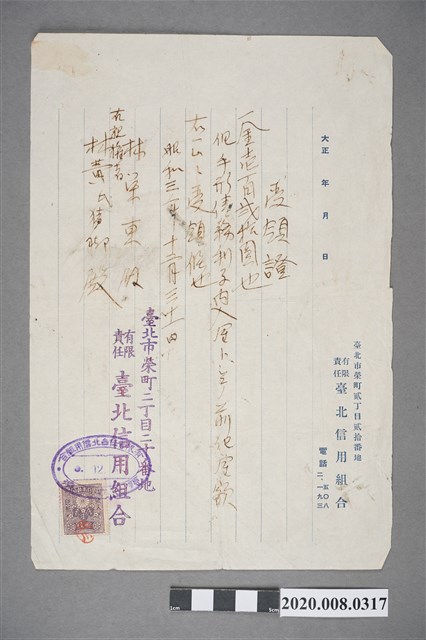 臺北市榮町貳丁目貳拾番地
有限責任 臺北信用組合
電話 二、五〇八 二、一九三
大正 年 月 日
受領證
一金壱百貳拾圓也
但手形債務利子内入金トシテ前記金額
右正ニ受領候也
昭和三年十二月三十一日
林 東 殿
右親権者
林黄氏 殿
臺北市榮町二丁目二十番地
有限責任 臺北信用組合
12
2020.008.0317